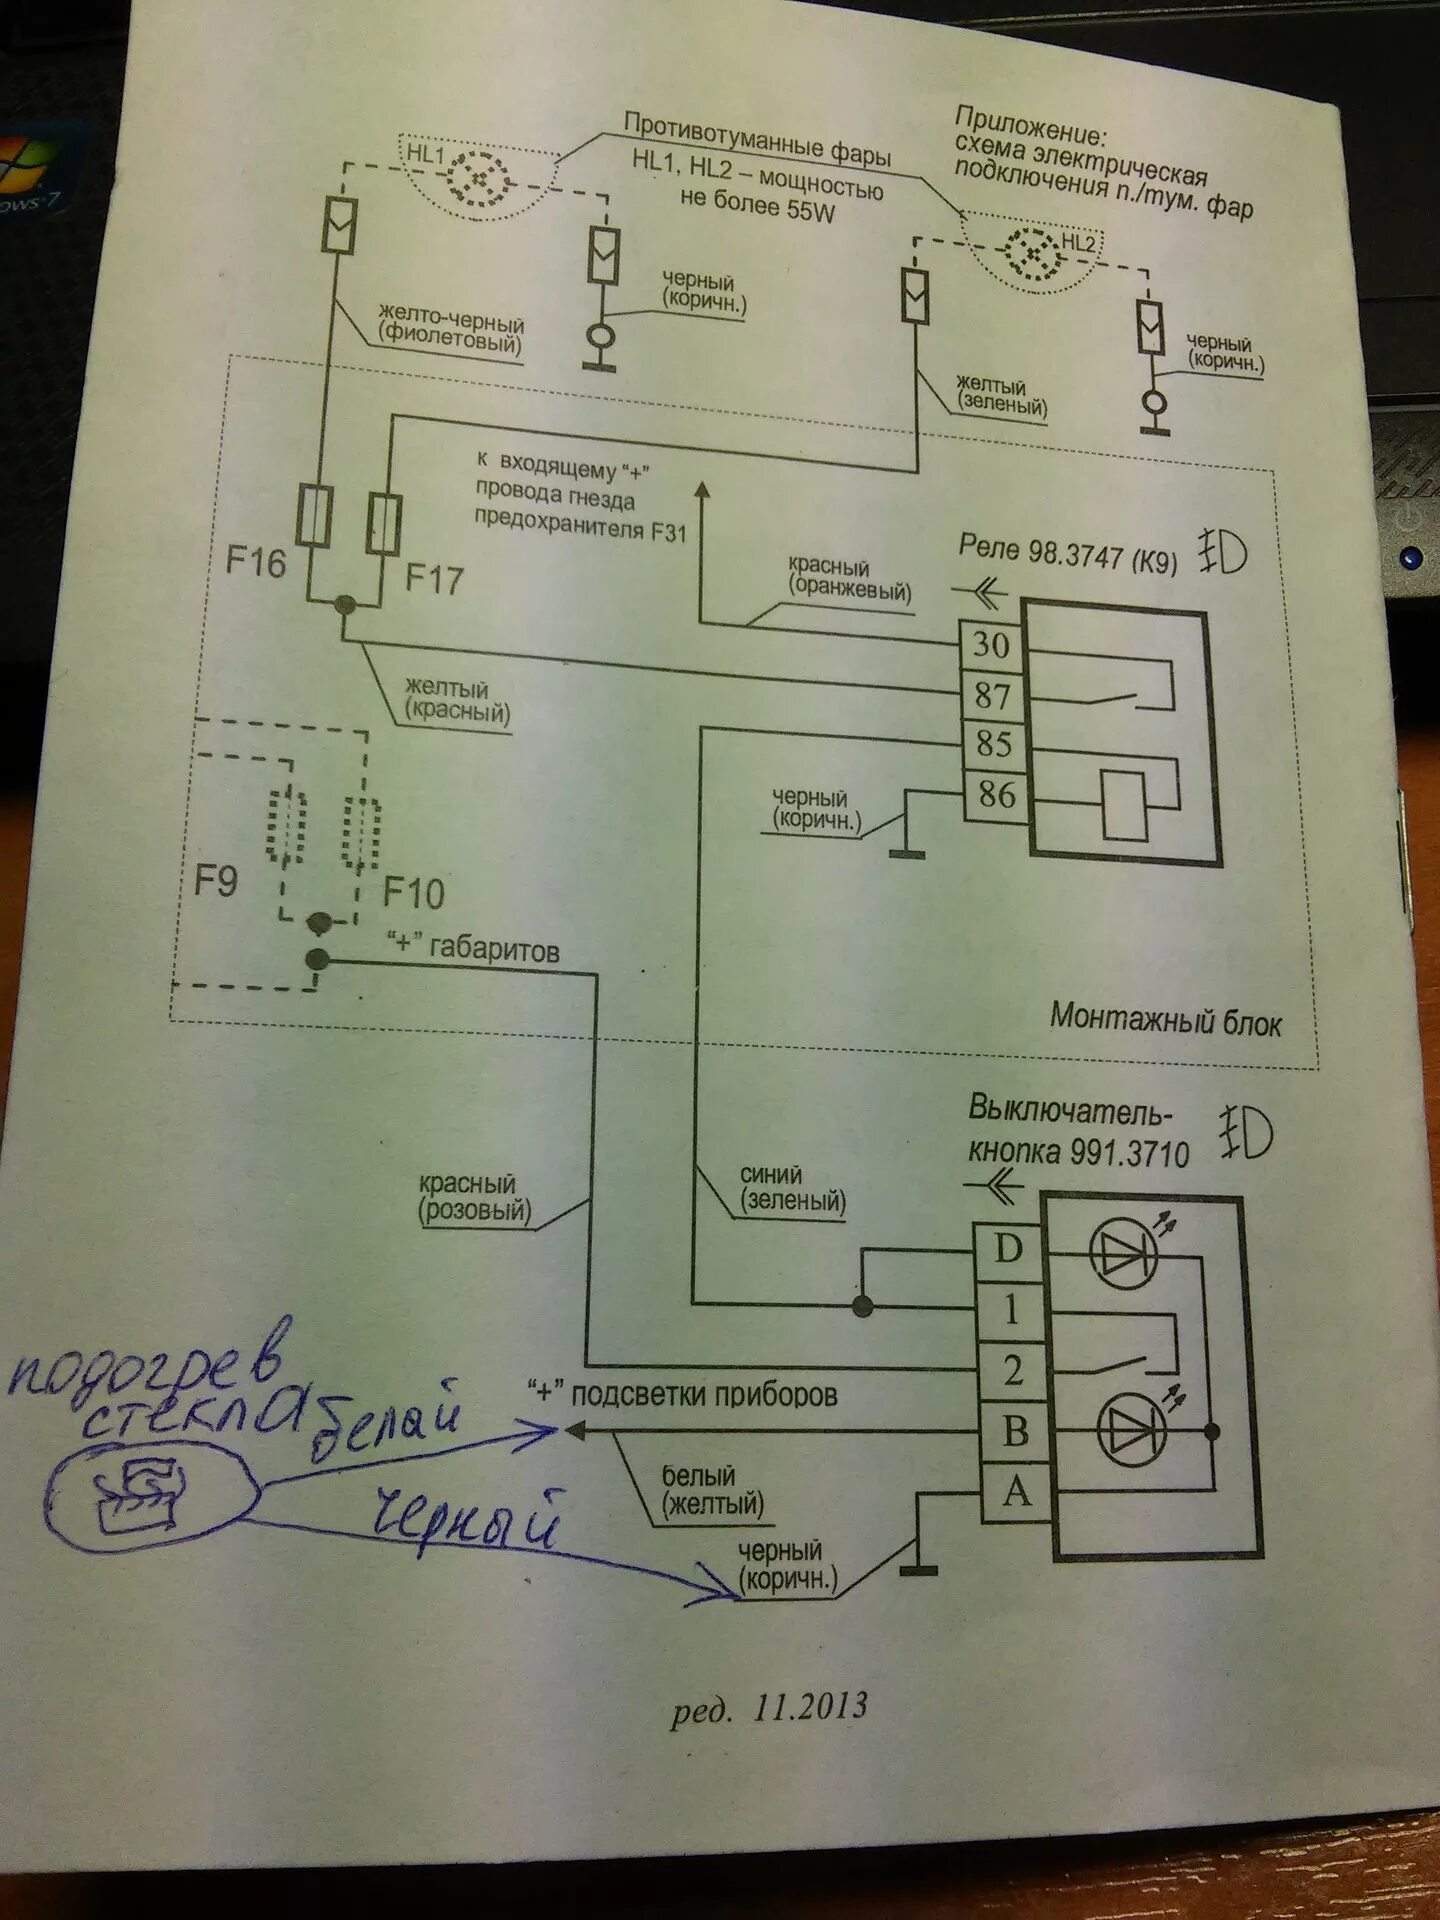 Приложение:
схема электрическая
подключения п./тум. фар
Противотуманные фары
HL1, HL2 – мощностью
не более 55W
HL1
HL2
желто-черный
(фиолетовый)
черный
(коричн.)
желтый
(зеленый)
черный
(коричн.)
к входящему "+"
провода гнезда
предохранителя F31
F16
F17
красный
(оранжевый)
Реле 98.3747 (К9)
30
87
85
86
желтый
(красный)
черный
(коричн.)
F9
F10
"+" габаритов
Монтажный блок
Выключатель-
кнопка 991.3710
красный
(розовый)
синий
(зеленый)
D
1
2
B
A
"+" подсветки приборов
белый
(желтый)
черный
(коричн.)
подогрев
стекла
белай
черный
ред. 11.2013
7